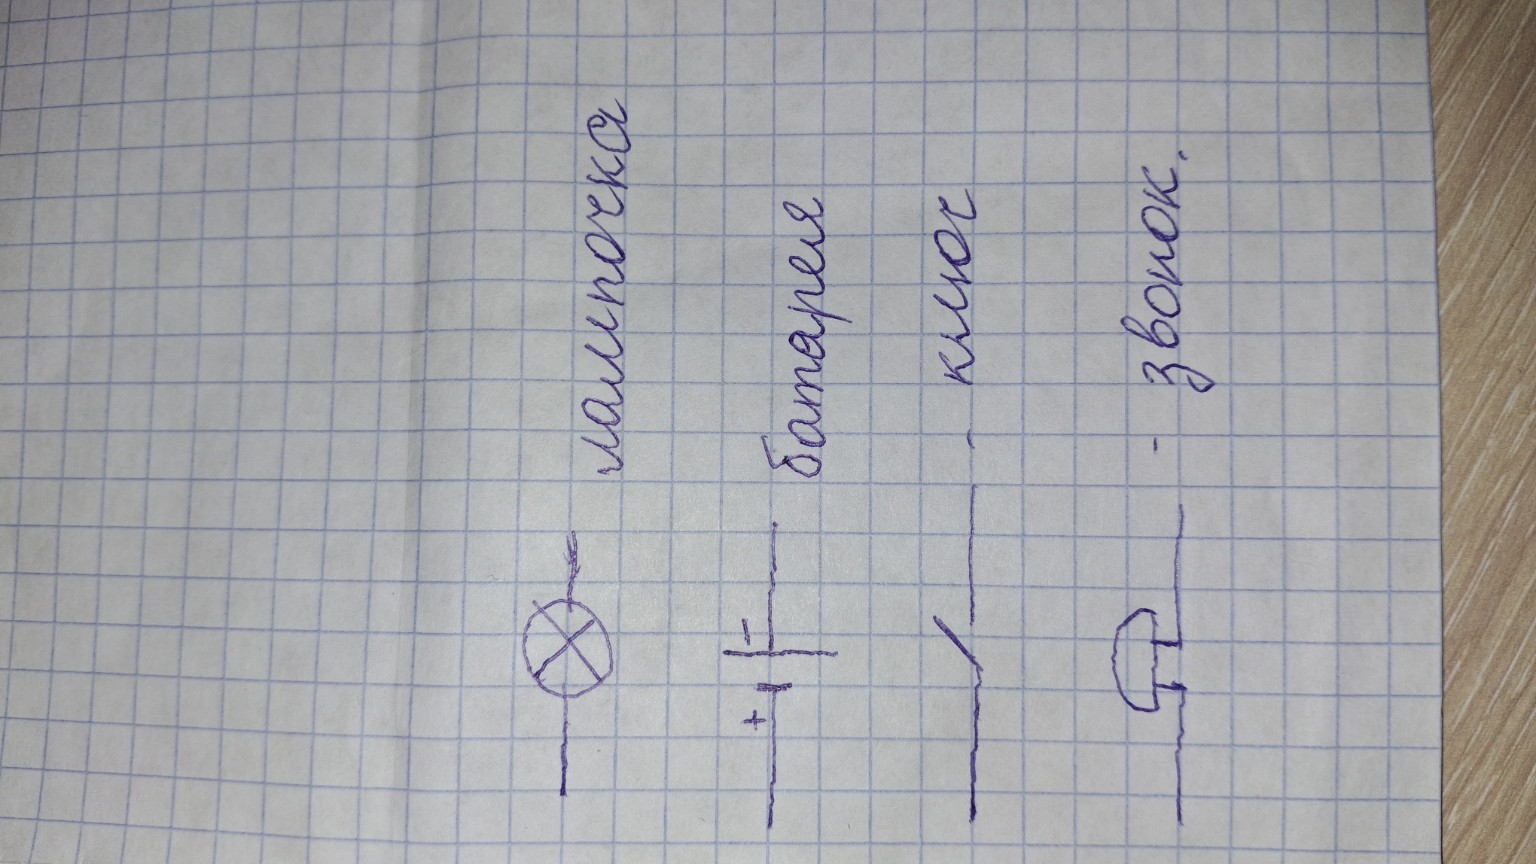 лампочка
+ - батарея
- ключ
- звонок.